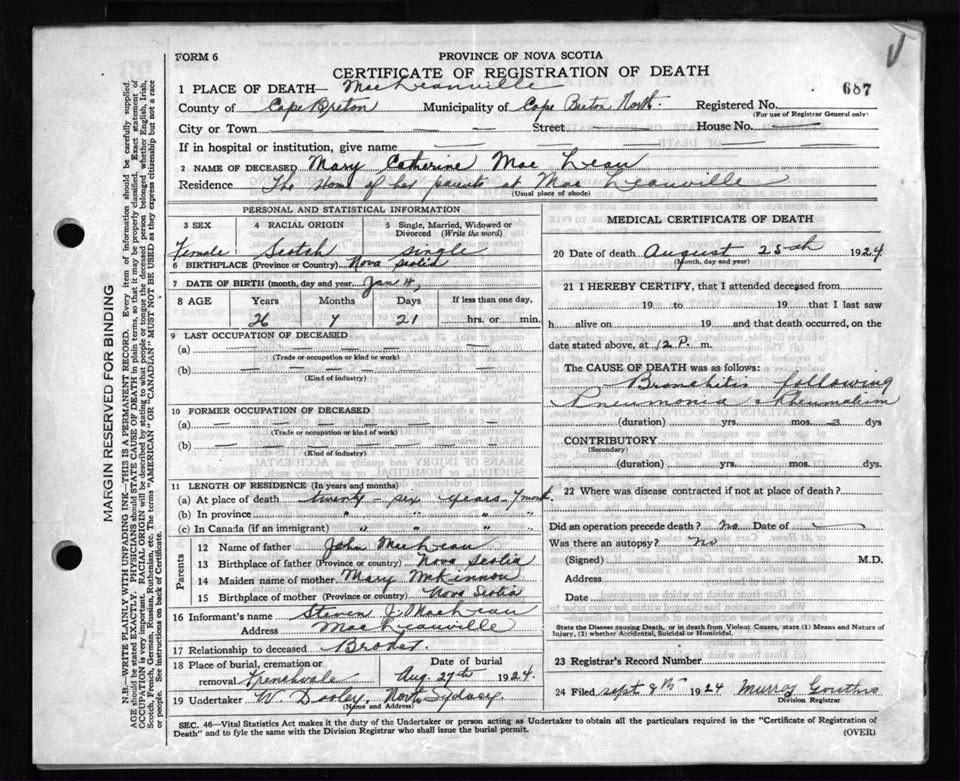 FORM 6
PROVINCE OF NOVA SCOTIA
CERTIFICATE OF REGISTRATION OF DEATH
1 PLACE OF DEATH— MacLeanville
687
County of Cape Breton Municipality of Cape Breton North. Registered No.
(For use of Registrar General only)
City or Town — Street — House No. —
If in hospital or institution, give name —
2 NAME OF DECEASED Mary Catherine MacLean
Residence The Home of her parents at MacLeanville
(Usual place of abode)
PERSONAL AND STATISTICAL INFORMATION
3 SEX 4 RACIAL ORIGIN 5 Single, Married, Widowed or Divorced (Write the word)
Female Scotch Single
6 BIRTHPLACE (Province or Country) Nova Scotia
7 DATE OF BIRTH (month, day and year) Jan 4,
8 AGE Years Months Days If less than one day,
26 7 21 hrs. or min.
9 LAST OCCUPATION OF DECEASED
(a) —
(Trade or occupation or kind or work)
(b) —
(Kind of industry)
10 FORMER OCCUPATION OF DECEASED
(a) —
(Trade or occupation or kind of work)
(b) —
(Kind of industry)
11 LENGTH OF RESIDENCE (In years and months)
(a) At place of death twenty-six years-7 month.
(b) In province " " "
(c) In Canada (if an immigrant) " " "
Parents
12 Name of father John MacLean
13 Birthplace of father (Province or country) Nova Scotia
14 Maiden name of mother Mary McKinnon
15 Birthplace of mother (Province or country) Nova Scotia
16 Informant's name Steven J. MacLean
Address MacLeanville
17 Relationship to deceased Brother
18 Place of burial, cremation or removal Frenchvale
Date of burial Aug. 27th 1924.
19 Undertaker W. Dooley, North Sydney.
(Name and Address)
MEDICAL CERTIFICATE OF DEATH
20 Date of death August 25th 1924
(Month, day and year)
21 I HEREBY CERTIFY, that I attended deceased from
19 to 19 that I last saw
h alive on 19 and that death occurred, on the
date stated above, at 12 P. m.
The CAUSE OF DEATH was as follows:
Bronchitis following
Pneumonia Rheumatism
(duration) yrs. mos. 3 dys
CONTRIBUTORY
(Secondary)
(duration) yrs. mos. dys.
22 Where was disease contracted if not at place of death?
Did an operation precede death? No Date of —
Was there an autopsy? No
(Signed) M.D.
Address
Date
State the Disease causing Death, or in death from Violent Causes, state (1) Means and Nature of
Injury, (2) whether Accidental, Suicidal or Homicidal.
23 Registrar's Record Number
24 Filed Sept. 8th 1924 Murray
Division Registrar
SEC. 46—Vital Statistics Act makes it the duty of the Undertaker or person acting as Undertaker to obtain all the particulars required in the "Certificate of Registration of
Death" and to fyle the same with the Division Registrar who shall issue the burial permit.
(OVER)
MARGIN RESERVED FOR BINDING
N.B.—WRITE PLAINLY WITH UNFADING INK—THIS IS A PERMANENT RECORD. Every item of information should be carefully supplied.
AGE should be stated EXACTLY. PHYSICIANS should STATE CAUSE OF DEATH in plain terms, so that it may be properly classified. Exact statement of
OCCUPATION is very important. RACIAL ORIGIN will be described by stating to what people or tongue the deceased person belonged whether English, Irish,
Scotch, French, German, Russian, Ruthenian, etc. The terms "AMERICAN" OR "CANADIAN" MUST NOT BE USED as they express citizenship but not a race
or people. See instructions on back of Certificate.